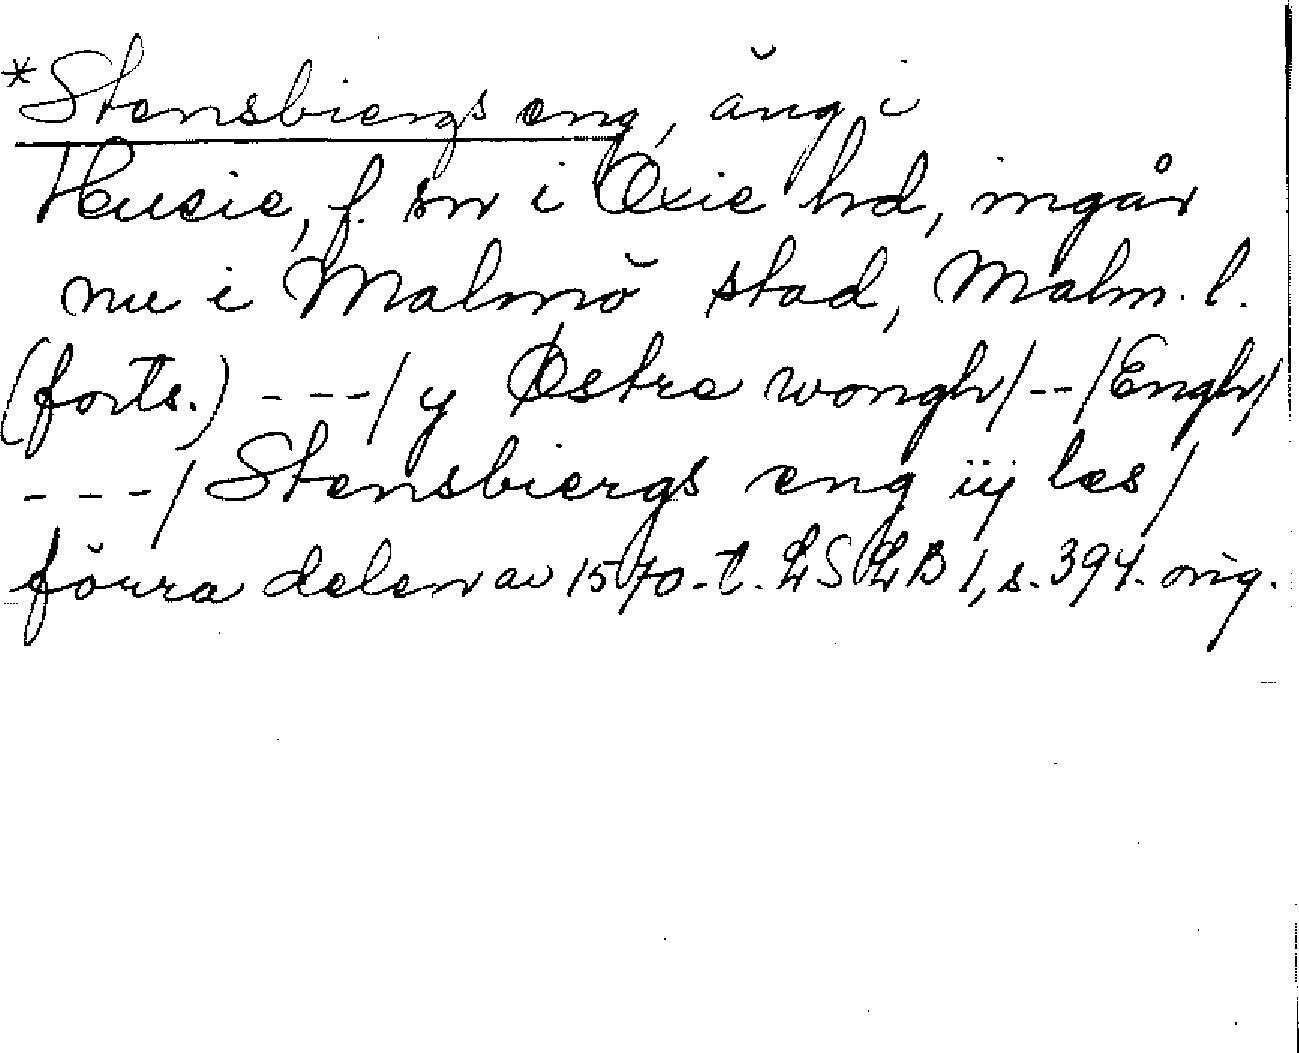 *Stensbiergs eng, äng i
Husie, f. sn i Oxie hd, ingår
nu i Malmö stad, Malm. l.
(forts.) ---/ y Østre wongh/--/Engh/
---/ Stensbiergs eng iij læs/
förra delen av 1570-t. LSLB 1, s. 394. orig.